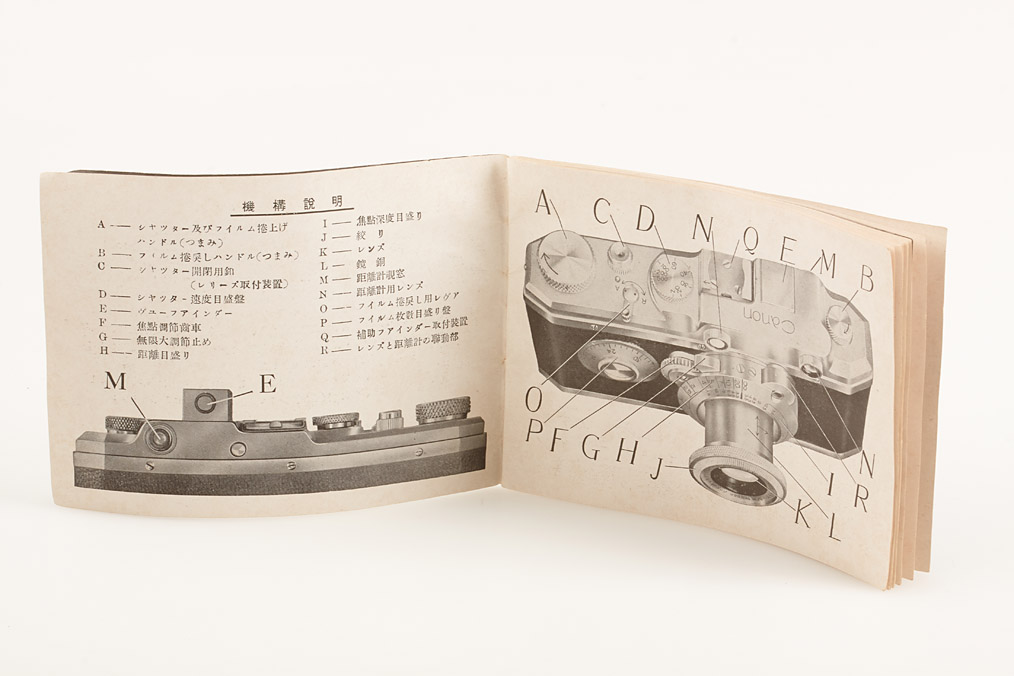 機構說明
A — シャツター及びフイルム捲上げ
ハンドル(つまみ)
B — フィルム捲戾しハンドル(つまみ)
C — シャツター開閉用釦
(レリーズ取付裝置)
D — シャツター速度目盛盤
E — ヴユーフアインダー
F — 焦點調節齒車
G — 無限大調節止め
H — 距離目盛り
I — 焦點深度目盛り
J — 絞り
K — レンズ
L — 鏡銅
M — 距離計視窓
N — 距離計用レンズ
O — フイルム捲戾し用レヴア
P — フイルム枚數目盛り盤
Q — 補助フアインダー取付裝置
R — レンズと距離計の聯動部
M
E
A
C
D
N
Q
E
M
B
Canon
O
P
F
G
H
J
K
L
I
R
N